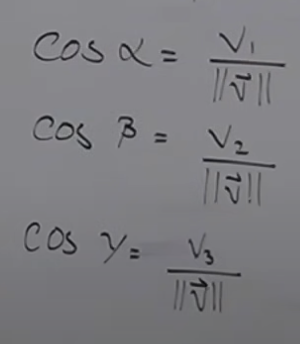 cos α = V₁ / ||v⃗||
cos β = V₂ / ||v⃗||
cos γ = V₃ / ||v⃗||